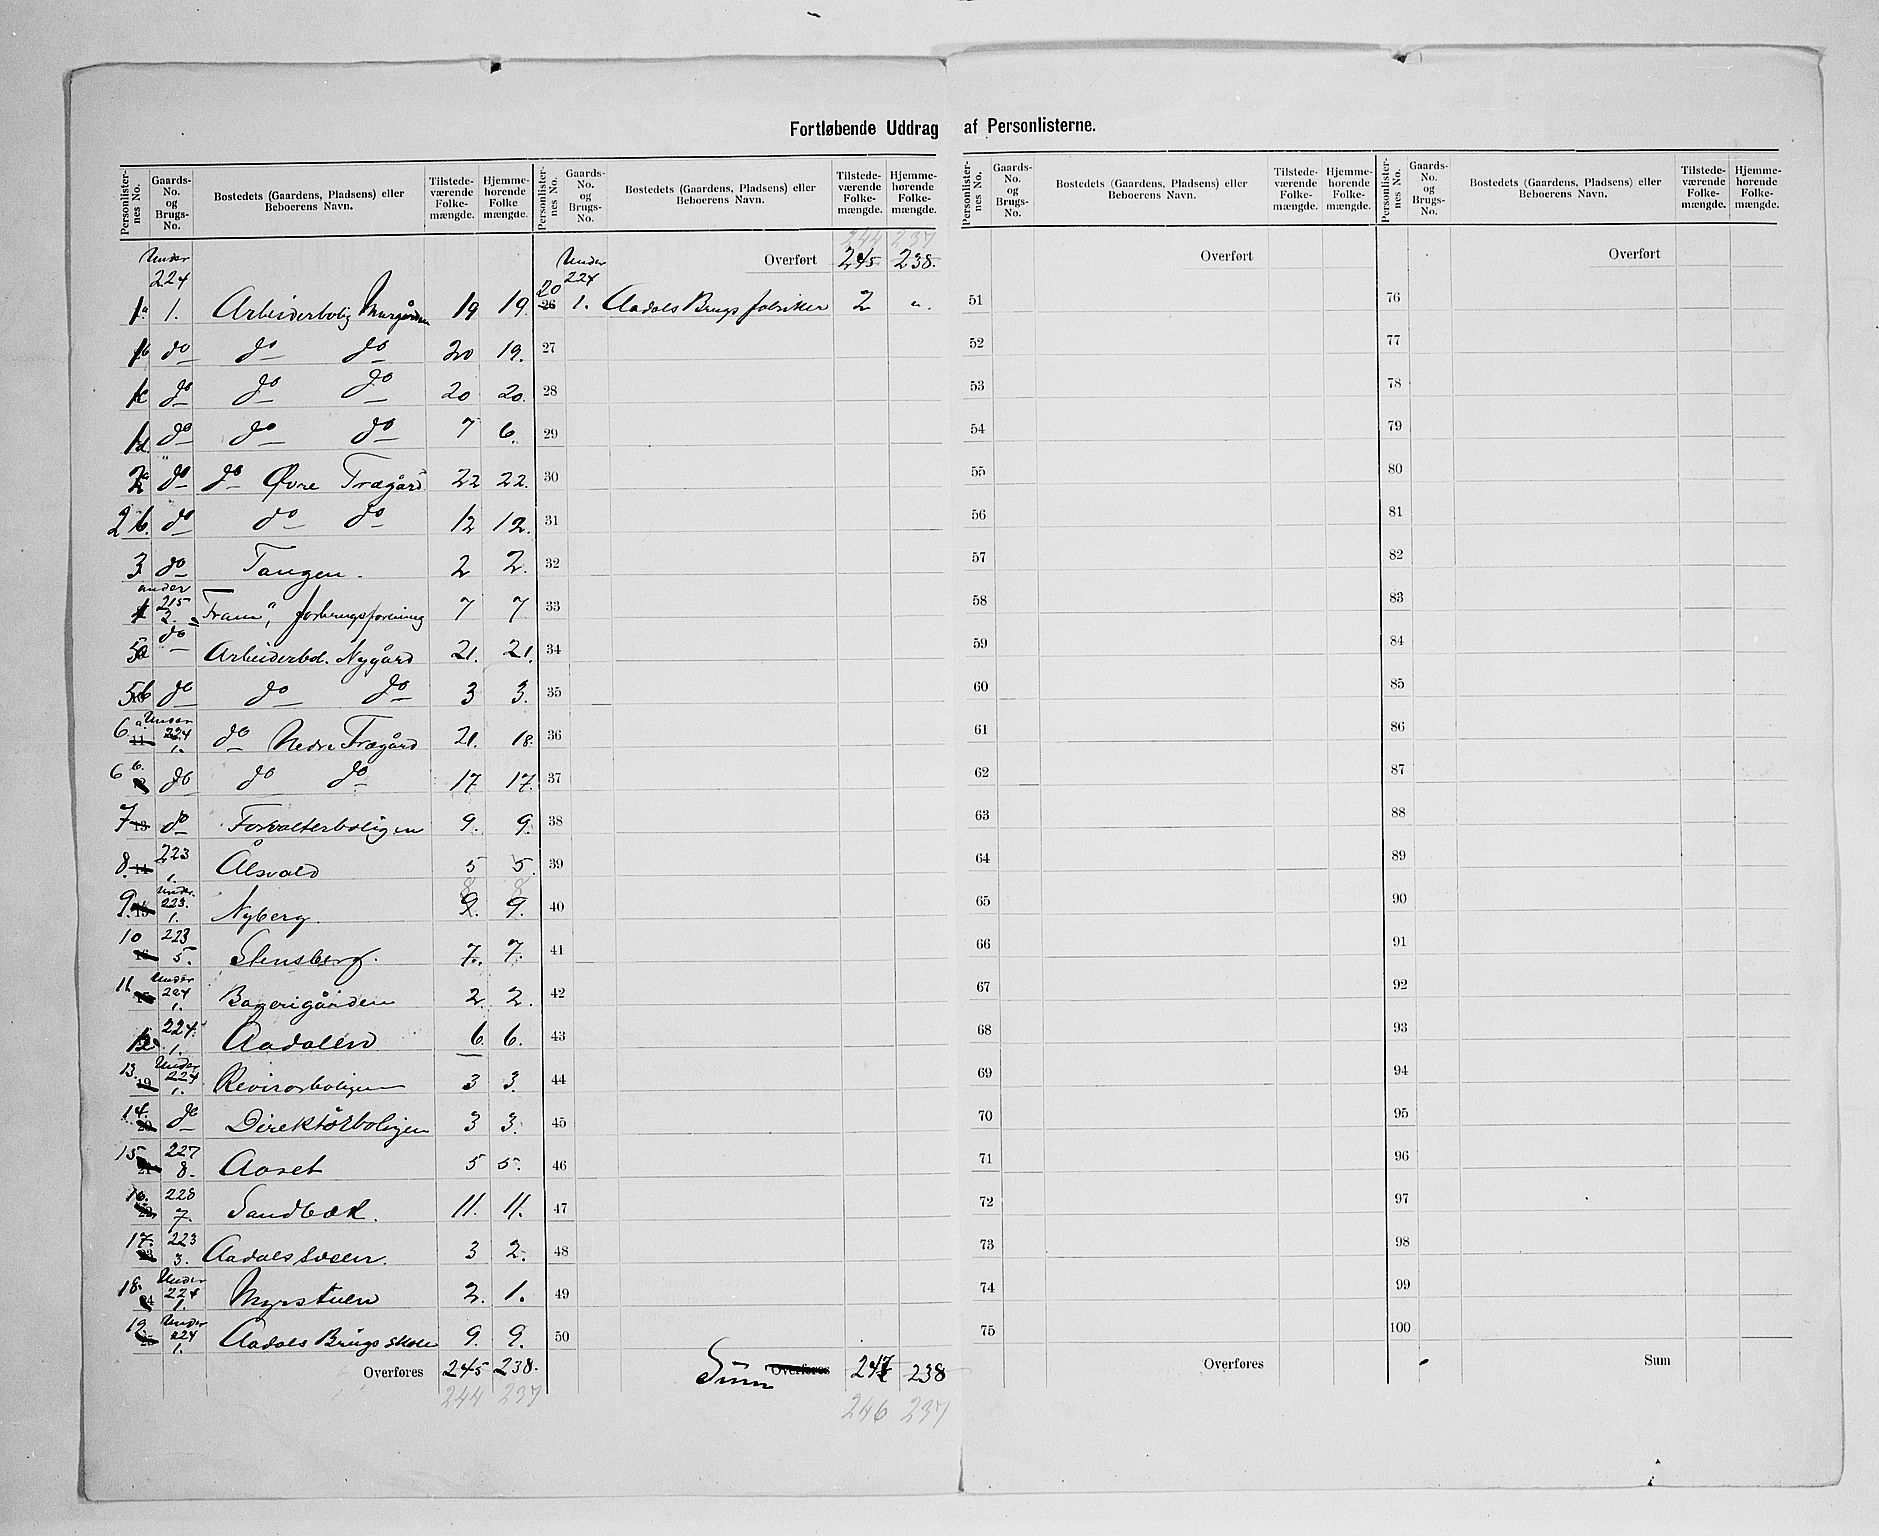 Fortløbende Uddrag af Personlisterne.
Personlister-nes No. Gaards-No. og Brugs-No. Bostedets (Gaardens, Pladsens) eller Beboerens Navn. Tilstede-værende Folke-mængde. Hjemme-hørende Folke mængde.
Under 224
1a. 1. Arbeiderbolig Murgården 19 19.
1b do do do 20 19.
1c do do do 20 20.
1d. do do do 7 6.
2a do do Øvre Trægård 22 22.
2b. do do do 12 12.
3. do Tangen. 2 2.
4 under 215 2. "Fram", forbrugsforening 7 7
5a do Arbeiderbol. Nygård 21. 21.
5b do do do 3 3.
6a 11 Under 224 1. do Nedre Trægård 21. 18.
6b. do do do 17 17.
7 13 do Forvalterboligen 9. 9.
8. 14 223 1. Ålsvold 5 5.
8 8
9. 15 Under 223. 1. Nyberg. 9. 9.
10 223 5. Stensberg. 7. 7.
11. Under 224 1. Bagerigården 2. 2.
12. 224. 1. Aadalen 6. 6.
13. 19 Under 224 1. Revisorboligen 3 3.
14. 20 do Direktörboligen 3 3.
15 21 227 8. Aaset 5 5.
16. 22 228 7. Sandbæk. 11. 11.
17. 23 223 3. Aadalsosen. 3 2.
18. 24 Under 224 1. Myrstuen 2. 1.
19. 25 Under 224 1. Aadals Brugs skole 9. 9.
Overføres 245 238.
244 237
Personlister-nes No. Gaards-No. og Brugs-No. Bostedets (Gaardens, Pladsens) eller Beboerens Navn. Tilstede-værende Folke-mængde. Hjemme-hørende Folke-mængde.
244 237
Under 224 Overført 245 238.
20 26 1. Aadals Brugs fabrikker 2 ".
27
28
29
30
31
32
33
34
35
36
37
38
39
40
41
42
43
44
45
46
47
48
49
50
Sum Overføres 247 238
246 237
Personlister-nes No. Gaards-No. og Brugs-No. Bostedets (Gaardens, Pladsens) eller Beboerens Navn. Tilstede-værende Folke-mængde. Hjemme-hørende Folke-mængde.
Overført
51
52
53
54
55
56
57
58
59
60
61
62
63
64
65
66
67
68
69
70
71
72
73
74
75
Overføres
Personlister-nes No. Gaards-No. og Brugs-No. Bostedets (Gaardens, Pladsens) eller Beboerens Navn. Tilstede-værende Folke-mængde. Hjemme-hørende Folke-mængde.
Overført
76
77
78
79
80
81
82
83
84
85
86
87
88
89
90
91
92
93
94
95
96
97
98
99
100
Sum